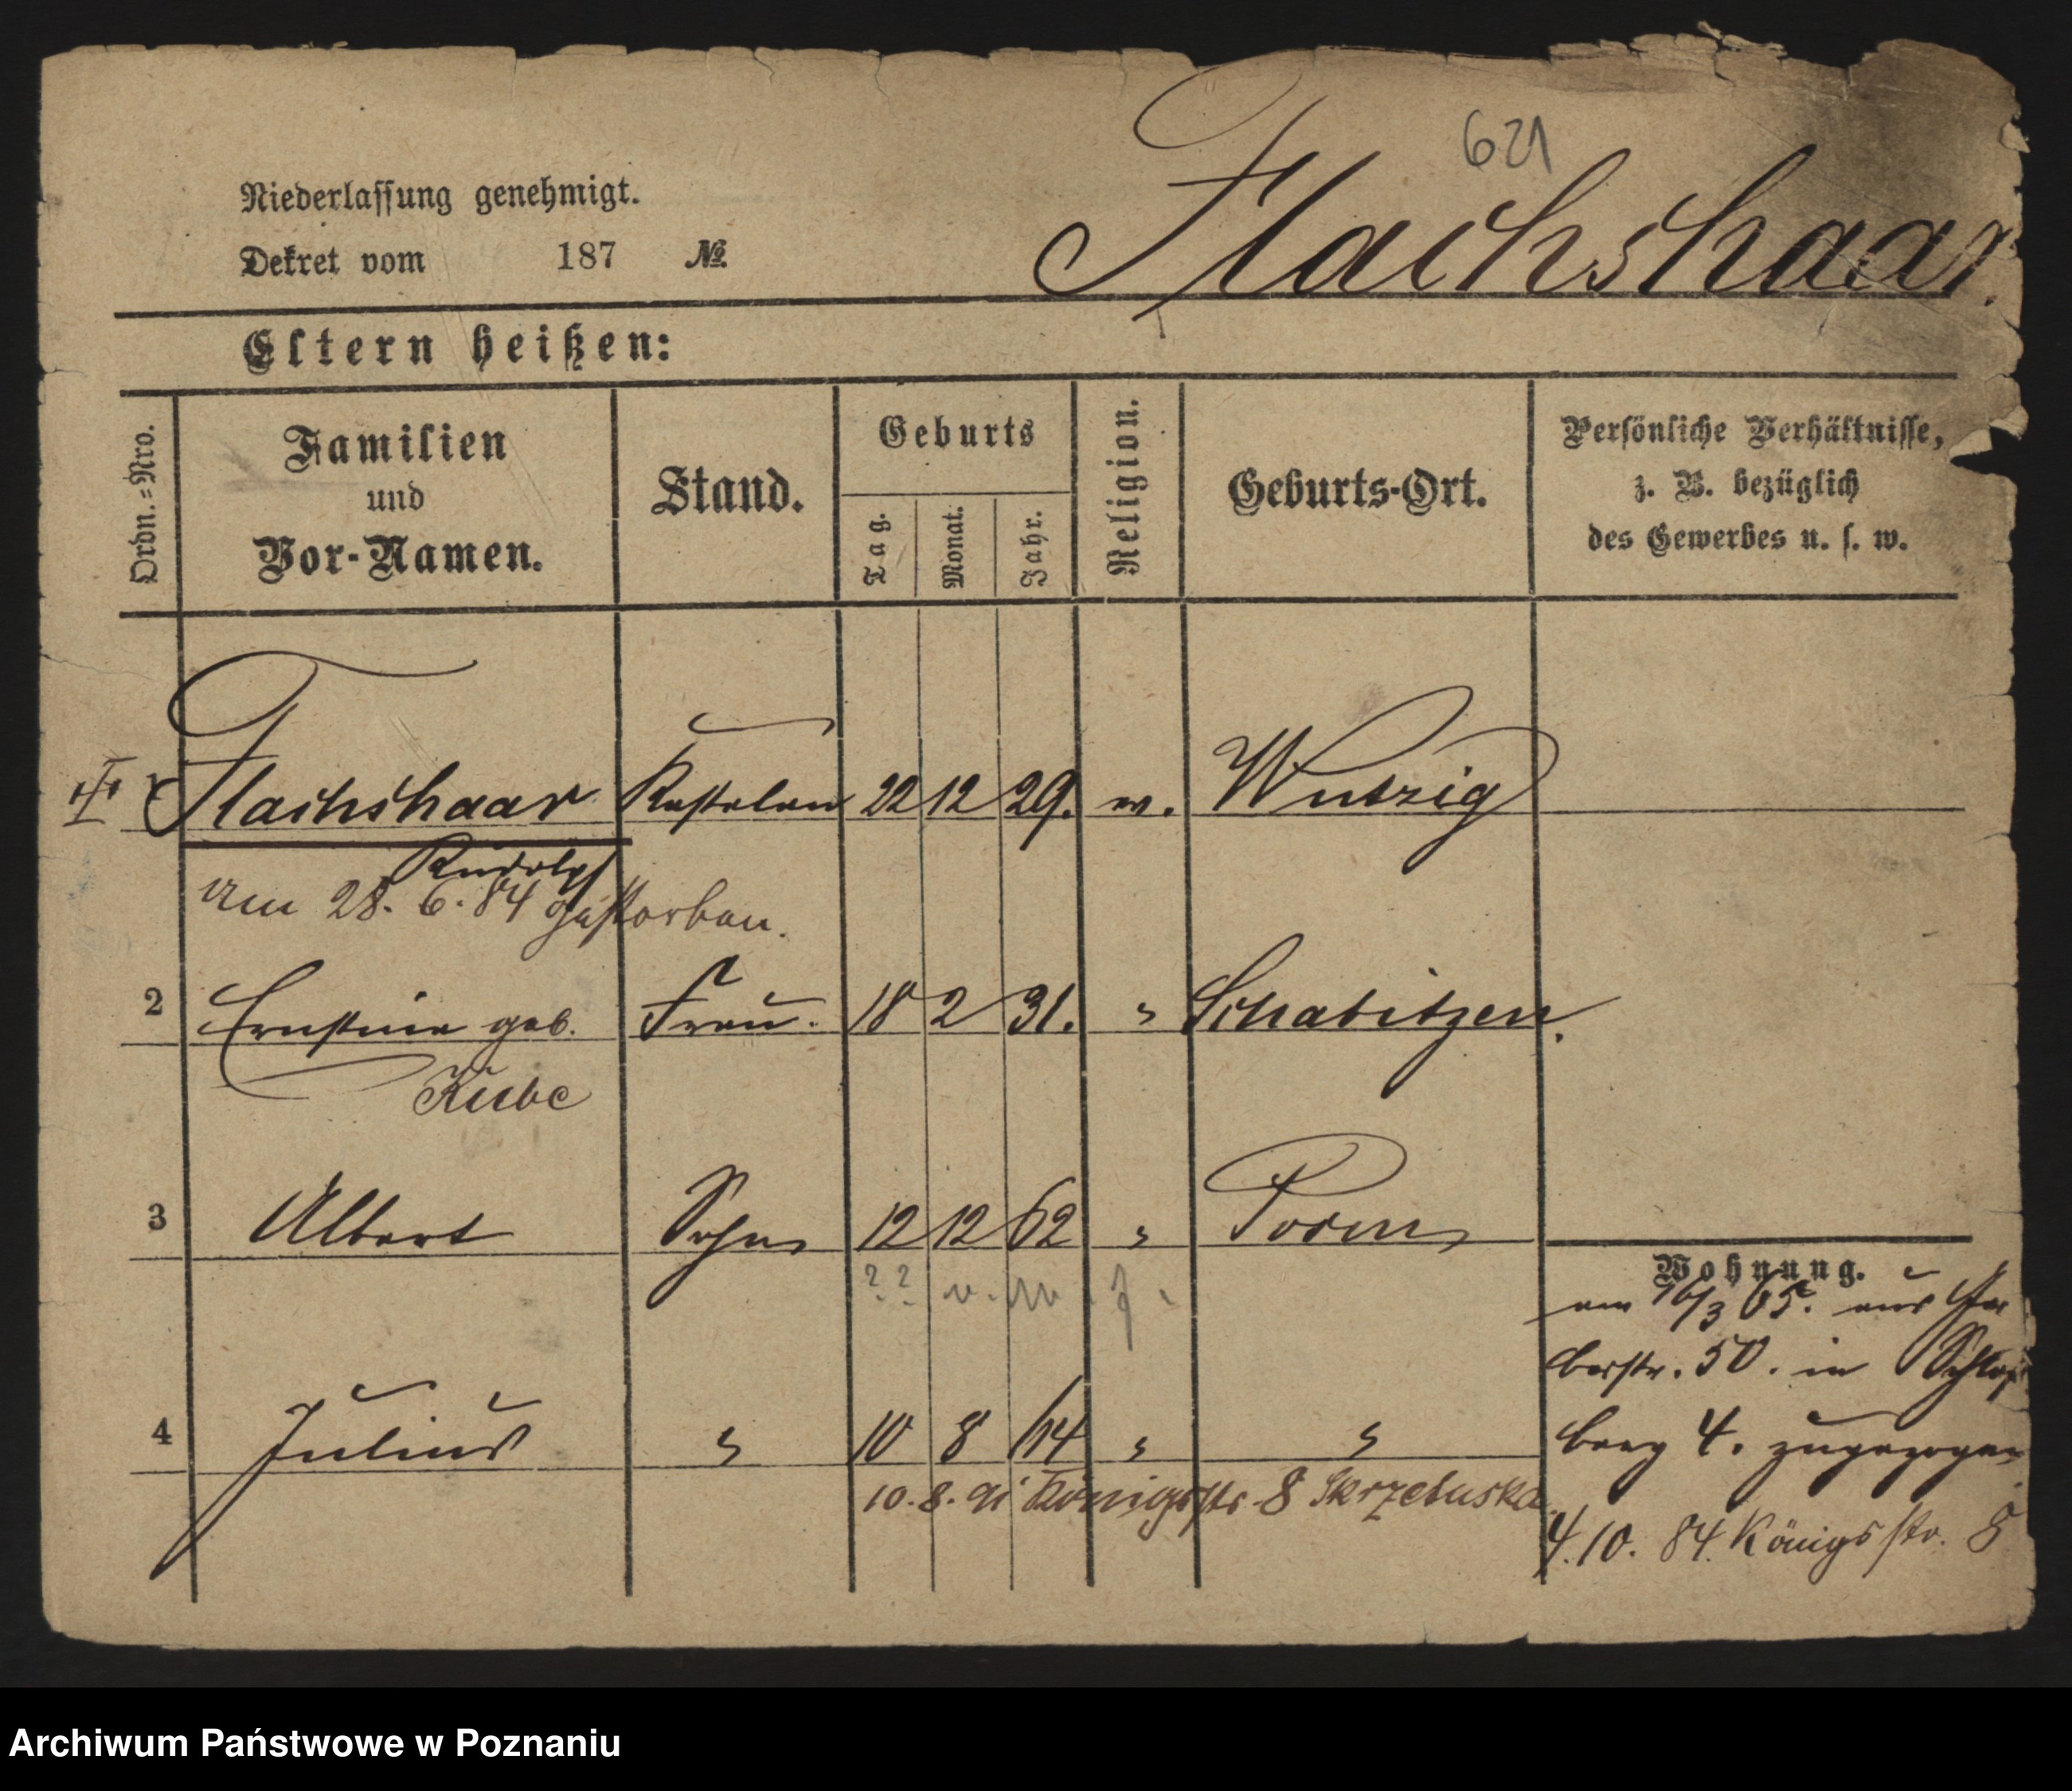 621
Flachshaar.
Niederlassung genehmigt.
Dekret vom 187 №
Eltern heißen:
Ordn.=Nro.
Familien
und
Vor-Namen.
Stand.
Geburts
Tag.
Monat.
Jahr.
Religion.
Geburts-Ort.
Persönliche Verhältnisse,
z. B. bezüglich
des Gewerbes u. s. w.
Flachshaar Kastelan 22 12 29. ev. Wutzig
Rudolf
am 28. 6. 84 gestorben.
2 Ernstine geb. Frau. 18 2 31. " Schabitzen.
Kube
3 Albert Sohn 12 12 62 " Posen
Wohnung.
am 16/3 65. aus
berstr. 50. in Schloß
4 Julius " 10 8 64 " "
berg 4. zugezogen
10. 8. 91 Königsstr. 8 Skrzetuska
4. 10. 84. Königsstr. 8
Archiwum Państwowe w Poznaniu